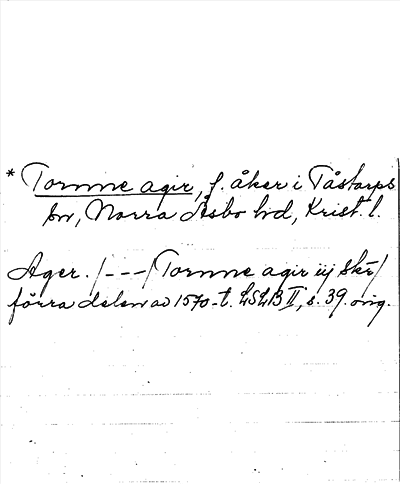 * Tornne agir, f. åker i Tåstarps
sn, Norra Åsbo hd, Krist. l.
Ager. /---/ Tornne agir iij skr/
förra delen av 1570-t. LSLB II, s. 39. orig.